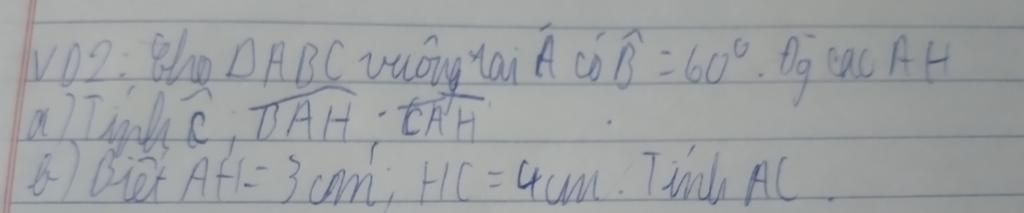 VD2: Cho ΔABC vuông tại A có B̂ = 60°. Đg cao AH
a) Tính Ĉ; BAH; CAH
b) Biết AH = 3cm; HC = 4cm. Tính AC.